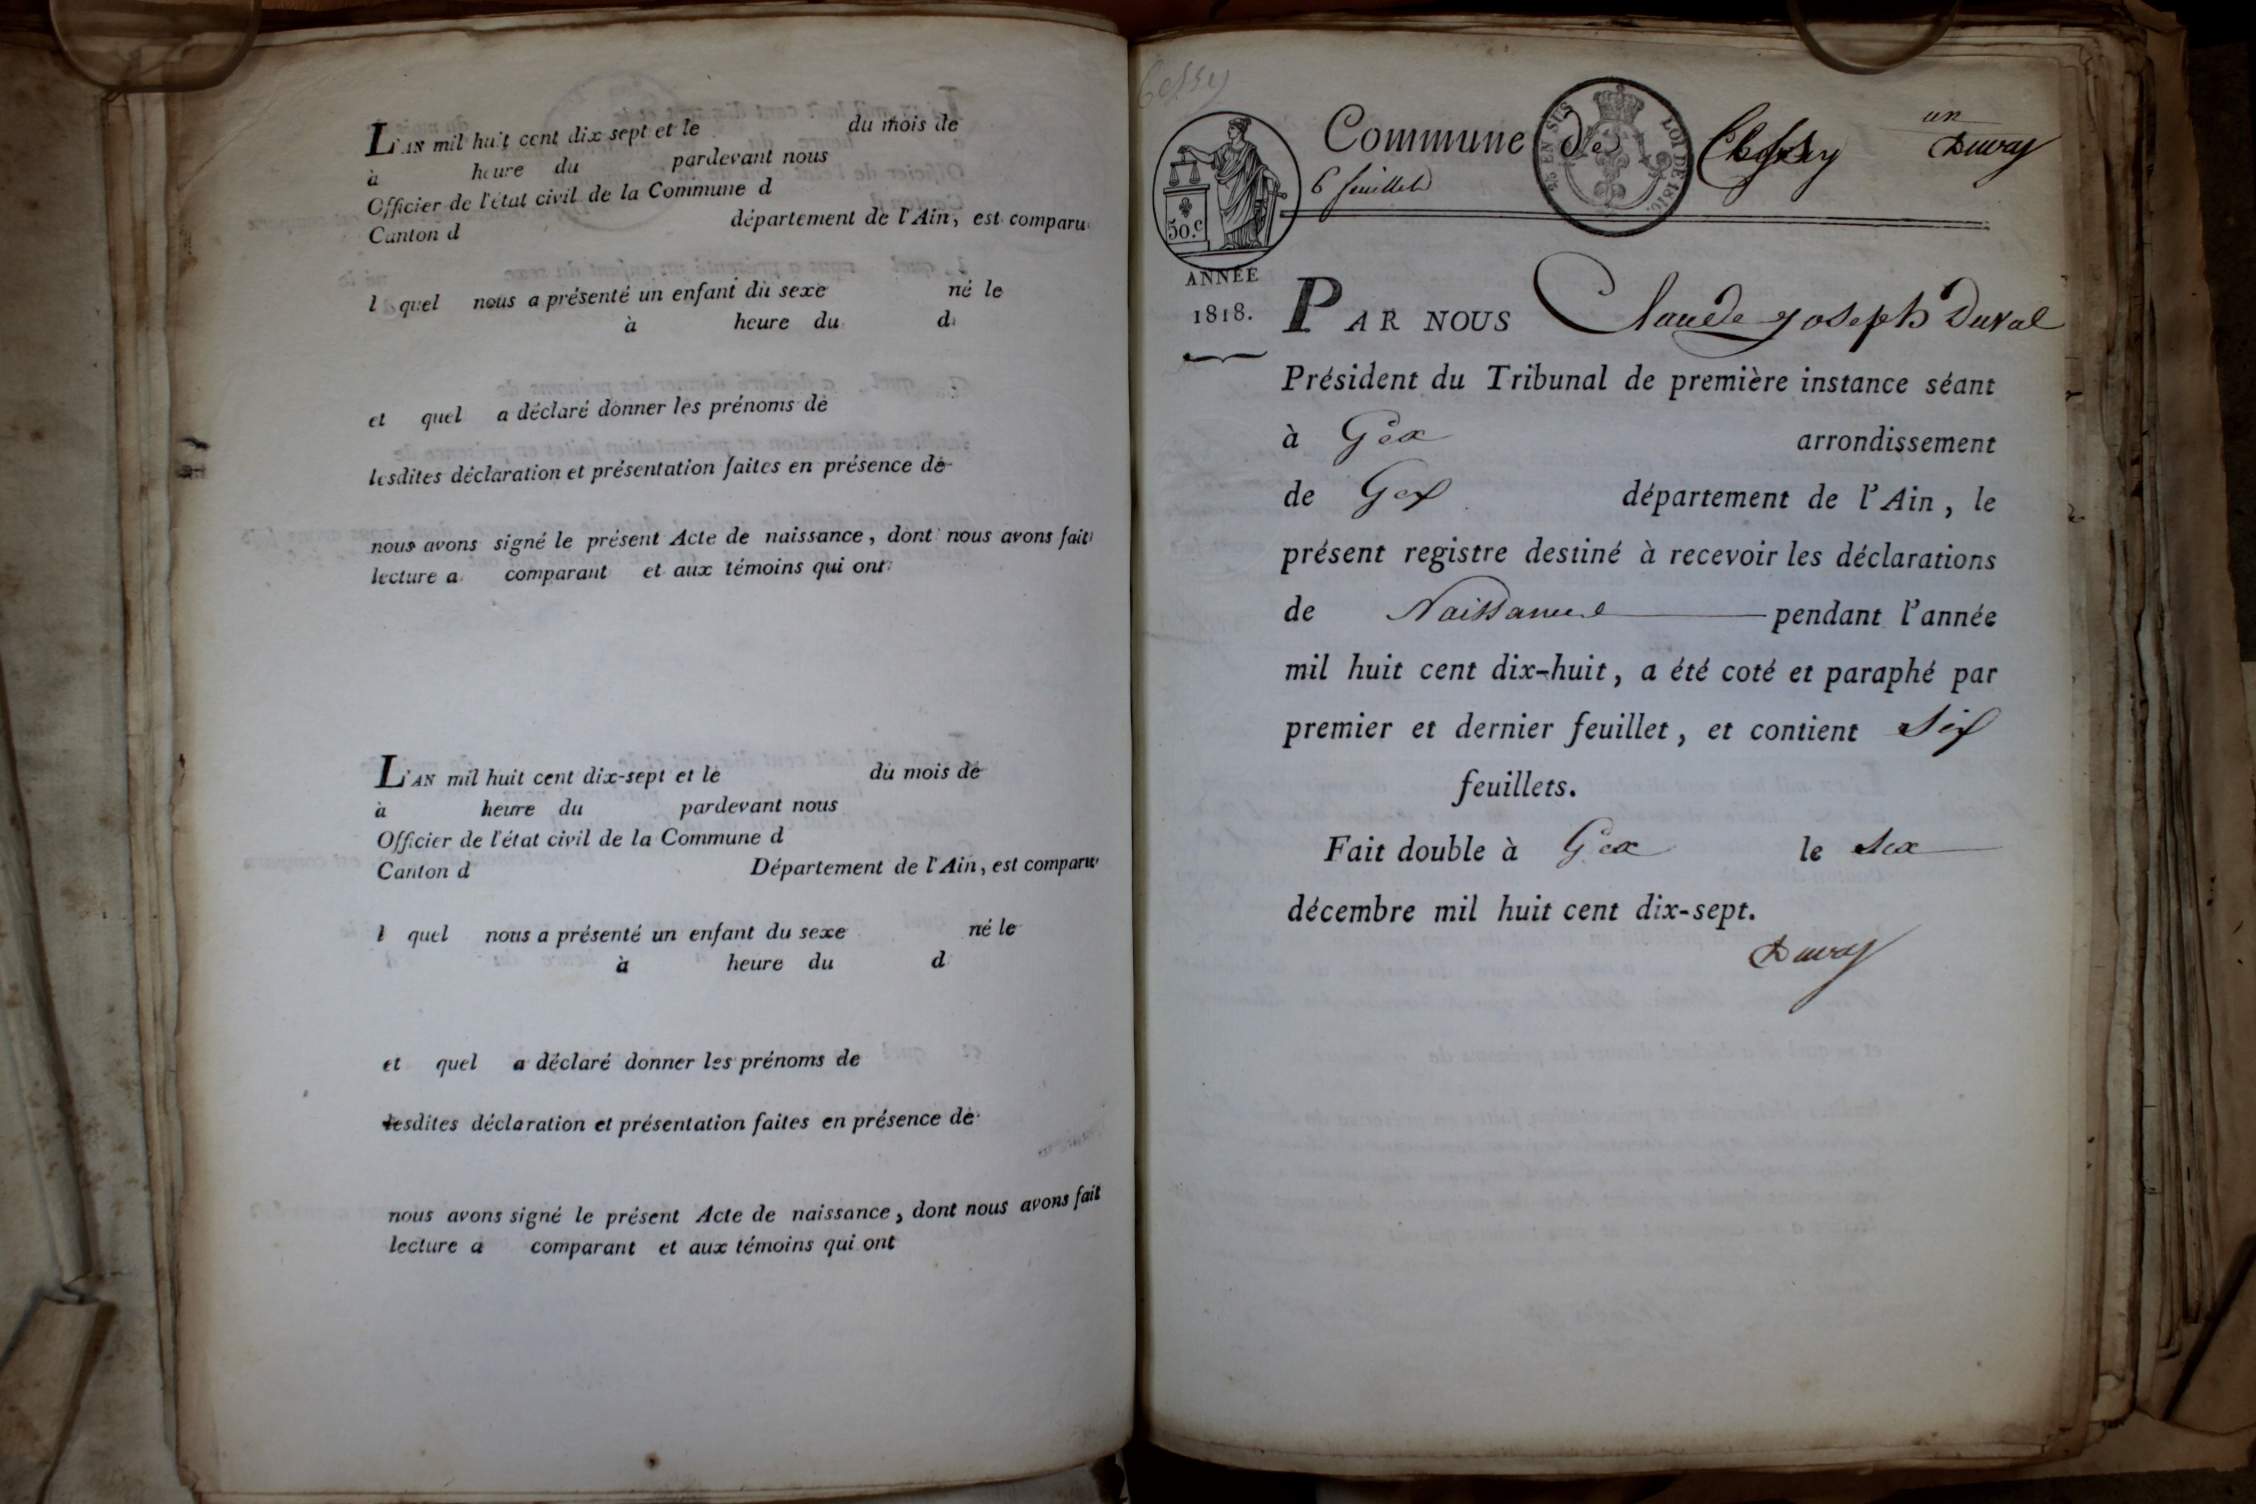 L'AN mil huit cent dix sept et le du mois de
à heure du pardevant nous
Officier de l'état civil de la Commune d
Canton d département de l'Ain, est comparu
l quel nous a présenté un enfant du sexe né le
à heure du d
et quel a déclaré donner les prénoms de
lesdites déclaration et présentation faites en présence de
nous avons signé le présent Acte de naissance, dont nous avons fait
lecture a comparant et aux témoins qui ont
L'AN mil huit cent dix-sept et le du mois de
à heure du pardevant nous
Officier de l'état civil de la Commune d
Canton d Département de l'Ain, est comparu
l quel nous a présenté un enfant du sexe né le
à heure du d
et quel a déclaré donner les prénoms de
lesdites déclaration et présentation faites en présence de
nous avons signé le présent Acte de naissance, dont nous avons fait
lecture a comparant et aux témoins qui ont
Cessy
un
Commune de Duval
6 feuillets
25 EN SUS LOI DE 1816.
50.c
ANNÉE
1818.
PAR NOUS Claude Joseph Duval
Président du Tribunal de première instance séant
à Gex arrondissement
de Gex département de l'Ain, le
présent registre destiné à recevoir les déclarations
de Naissance pendant l'année
mil huit cent dix-huit, a été coté et paraphé par
premier et dernier feuillet, et contient Six
feuillets.
Fait double à Gex le six
décembre mil huit cent dix-sept.
Duval